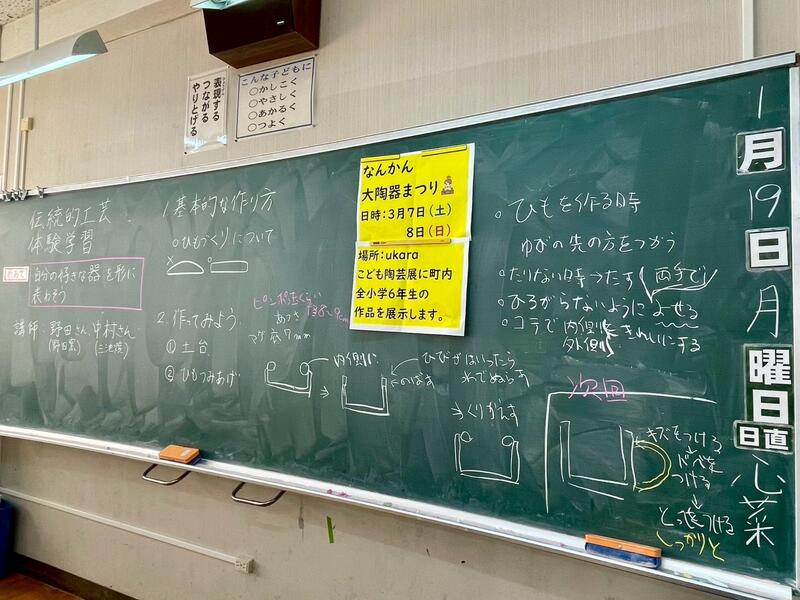 表現する
つながる
やりとげる
こんな子どもに
○かしこく
○やさしく
○あかるく
○つよく
伝統的工芸
体験学習
めあて
自分の好きな器を形に
表わそう
講師:野田さん,中村さん
(野田窯) (三池焼)
1 基本的な作り方
○ひもづくりについて
×
○
2.作ってみよう
① 土台
② ひもつみあげ
ピンポン玉くらい
あつさ
マグ 底7mm
内側
のばす
ひびがはいったら
⇒くりかえす
なんかん
大陶器まつり
日時:3月7日(土)
8日(日)
場所:ukara
こども陶芸展に町内
全小学6年生の
作品を展示します。
○ひもを作る時
ゆびの先の方をつかう
○たりない時→たす(両手で)
○ひろがらないように よせる
○コテで内側 きれいにする
外側
次回
キズをつける
つける
↓
とってをつける
しっかりと
1月19日月曜日
日直
心菜